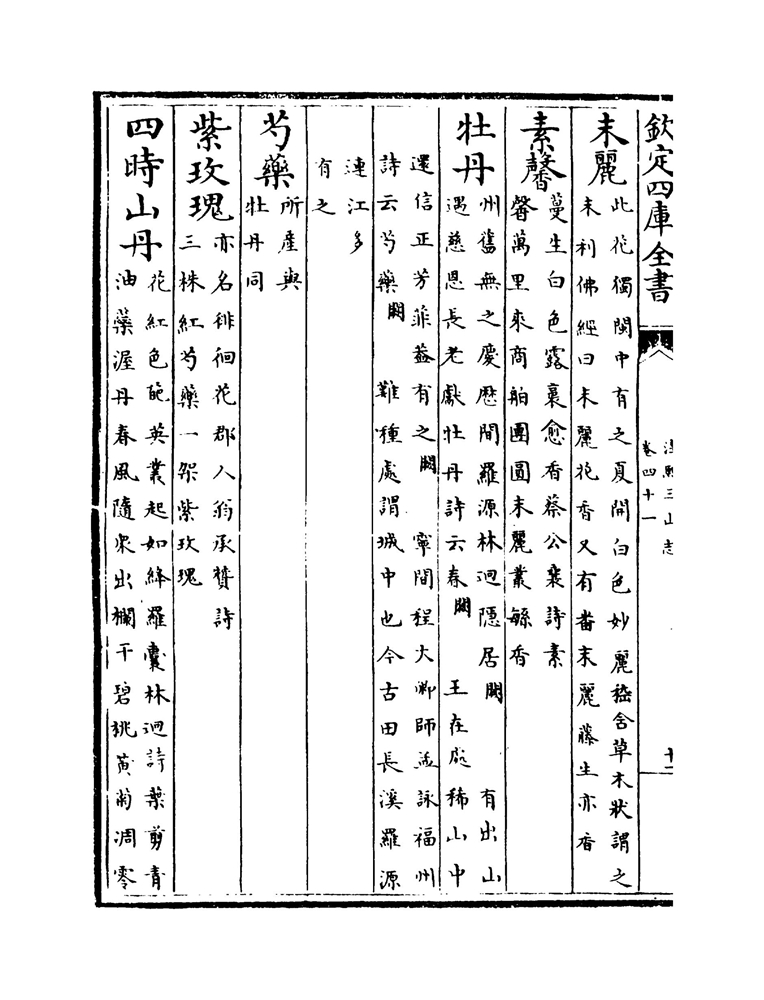 欽定四庫全書
卷四十一
淳熙三山志
十二
末麗
此花獨閩中有之夏開白色妙麗嵇含草木狀謂之
末利佛經曰末麗花香又有畨末麗藤生亦香
素馨
蔓生白色露裛愈香蔡公襄詩素
馨萬里來商舶團圓末麗叢緜香
牡丹
州舊無之慶厯間羅源林迥隠居闕有出山
遇慈恩長老獻牡丹詩云春闕王在處稀山中
還信正芳菲葢有之闕寜間程大卿師孟詠福州
詩云芍藥闕難種處謂城中也今古田長溪羅源
連江多
有之
芍藥
所産與
牡丹同
紫玫瑰
亦名徘徊花郡人翁承贊詩
三株紅芍藥一架紫玫瑰
四時山丹
花紅色葩英叢起如絳羅囊林迥詩葉剪青
油蘂渥丹春風隨衆出欄干碧桃黄菊凋零